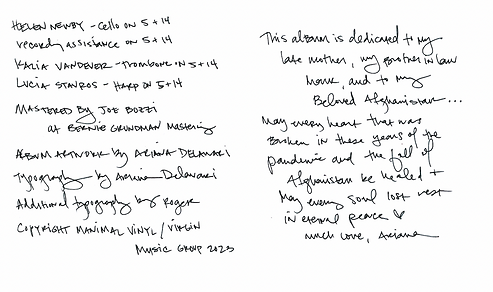 HELEN NEWBY - Cello on 5 + 14
record assistance on 5 + 14
KALIA VANDEVER - Trombone in 5 + 14
LUCIA STAVROS - HARP on 5 + 14
MASTERED By JOE BOZZI
at BERNIE GRUNDMAN MASTERING
ALBUM ARTWORK by ARIANA DELAWARI
Typography by Ariana Delawari
Additional typography by Roger
COPYRIGHT MANIMAL VINYL / VIRGIN
MUSIC GROUP 2023
This album is dedicated to my
late mother, my brother in law
and to my
Beloved Afghanistan...
May every heart that was
Broken in these years of the
pandemic and the fall of
Afghanistan be healed +
May every soul lost rest
in eternal peace
much love, Ariana